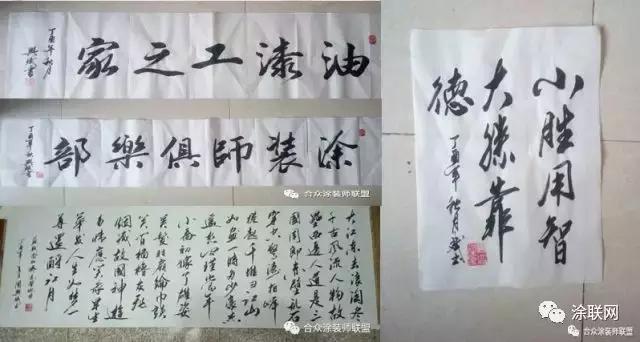 油漆工之家
丁酉年秋月
涂装師俱樂部
丁酉年秋
合众涂装师联盟
大江东去浪淘尽
千古风流人物故
垒西边人道是三
国周郎赤壁乱石
穿空惊涛拍岸
卷起千堆雪江山
如画一时多少豪杰
遥想公瑾当年
小乔初嫁了雄姿
英发羽扇纶巾谈
笑间樯橹灰飞
烟灭故国神遊
多情应笑我早生
华发人生如梦一
尊還酹江月
合众涂装师联盟
小胜用智
大勝靠
德
丁酉年秋月
涂联网
合众涂装师联盟